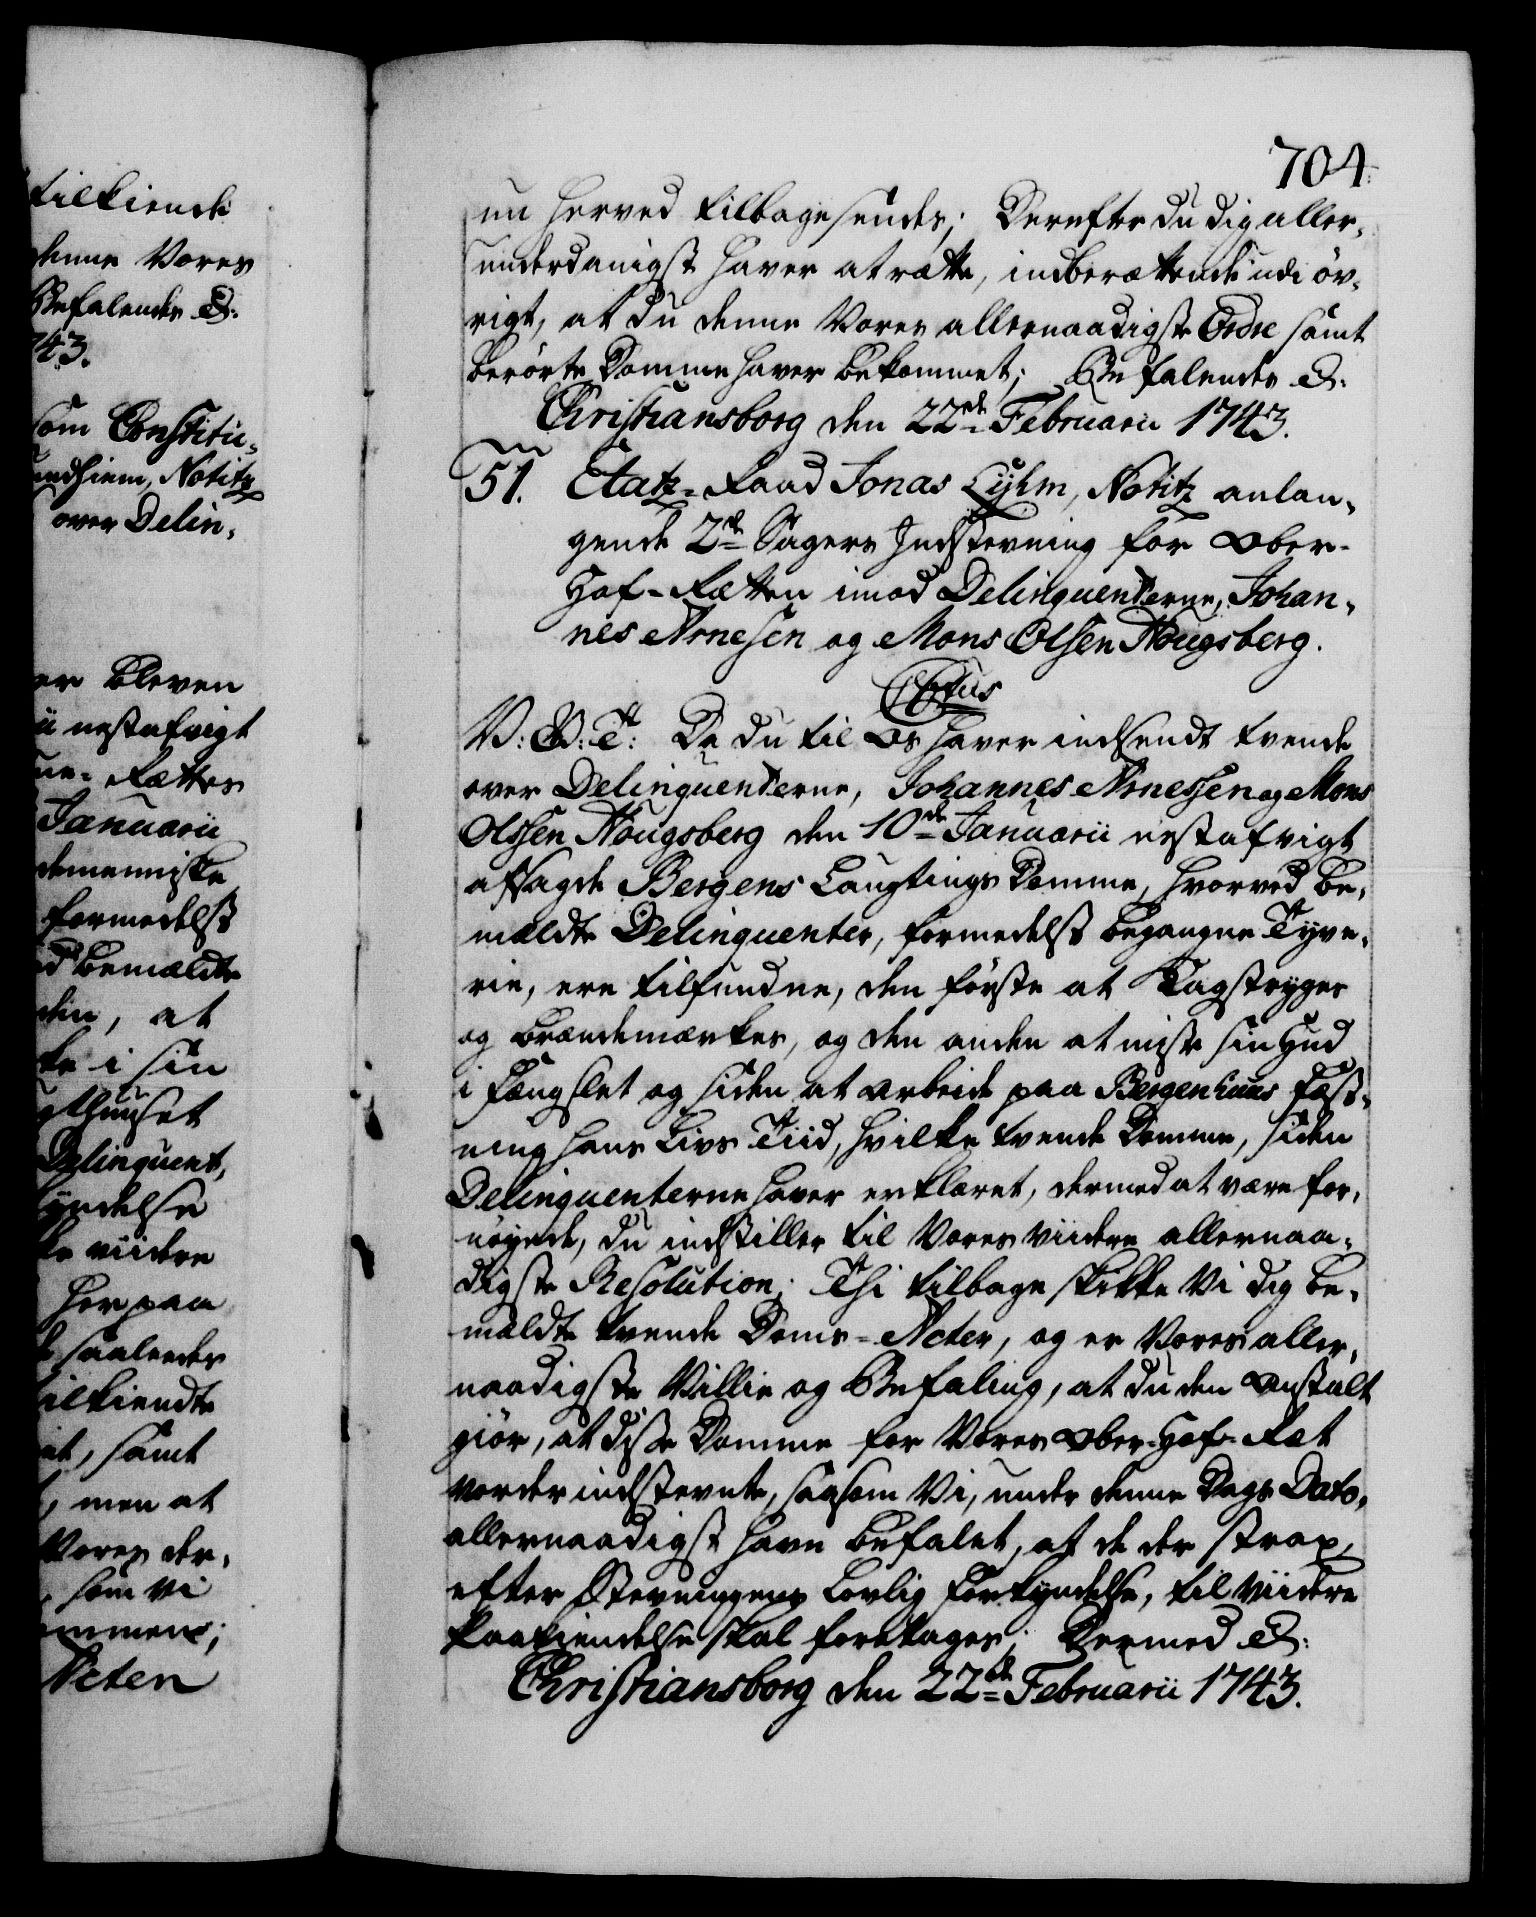 tilkiende
denne Vores
Befalendes &:
743.
som Constitu-
undhiem, Notitz
over Delin-
er bleven
ii nestafvigt
ne-Rættes
Januarii
demenniske
formedelst
d bemældte
din, at
ke i sin
gthuuset
Delinquent,
yndelse
te viidere
her paa
saaledes
ilkiendte
et, samt
, men at
Vores der-
som Vi
ommene;
Acten
704.
nu herved tilbagesendes; Derefter du dig aller-
underdanigst haver at rætte, indberættende udi øv-
rigt, at du denne Vores allernaadigste Ordre samt
berørte Domme haver bekommet; Befalendes &:
Christiansborg den 22de Februarii 1743.
51. Etatz-Raad Jonas Lyhm, Notitz anlan-
gende 2de Sagers Indstevning for Ober-
Hof-Rætten imod Delinquenterne, Johan-
nes Arnesen og Mons Olsen Nougsberg.
Ctus
V: G: T: Da du til Os haver indsendt tvende
over Delinquenterne, Johannes Arnesen og Mons
Olssen Nougsberg den 10de Januarii nestafvigt
afsagde Bergens Laugtings Domme, hvorved be-
mældte Delinquenter, formedelst begangne Tyve-
rie, ere tilfundne, den første at Kagstryges
og brændemærkes, og den anden at miste sin Hud
i Fængslet og siden at arbeide paa Bergenhuus Fæst-
ning hans Livs Tiid, hvilke tvende Domme, siden
Delinquenterne haver erklæret, dermed at være for-
nøyede, du indstiller til Vores viidere allernaa-
digste Resolution; Thi tilbage skikke Vi dig be-
mældte tvende Doms-Acter, og er Vores aller-
naadigste Villie og Befaling, at du den Anstalt
giør, at disse Domme for Vores Ober-Hof-Ræt
vorder indstevnte, saasom Vi, under denne Dags Dato,
allernaadigst have befalet, at de der strax,
efter Stevningens lovlig Forkyndelse, til viidere
Paakiendelse skal foretages; Dermed &:
Christiansborg den 22de Februarii 1743.